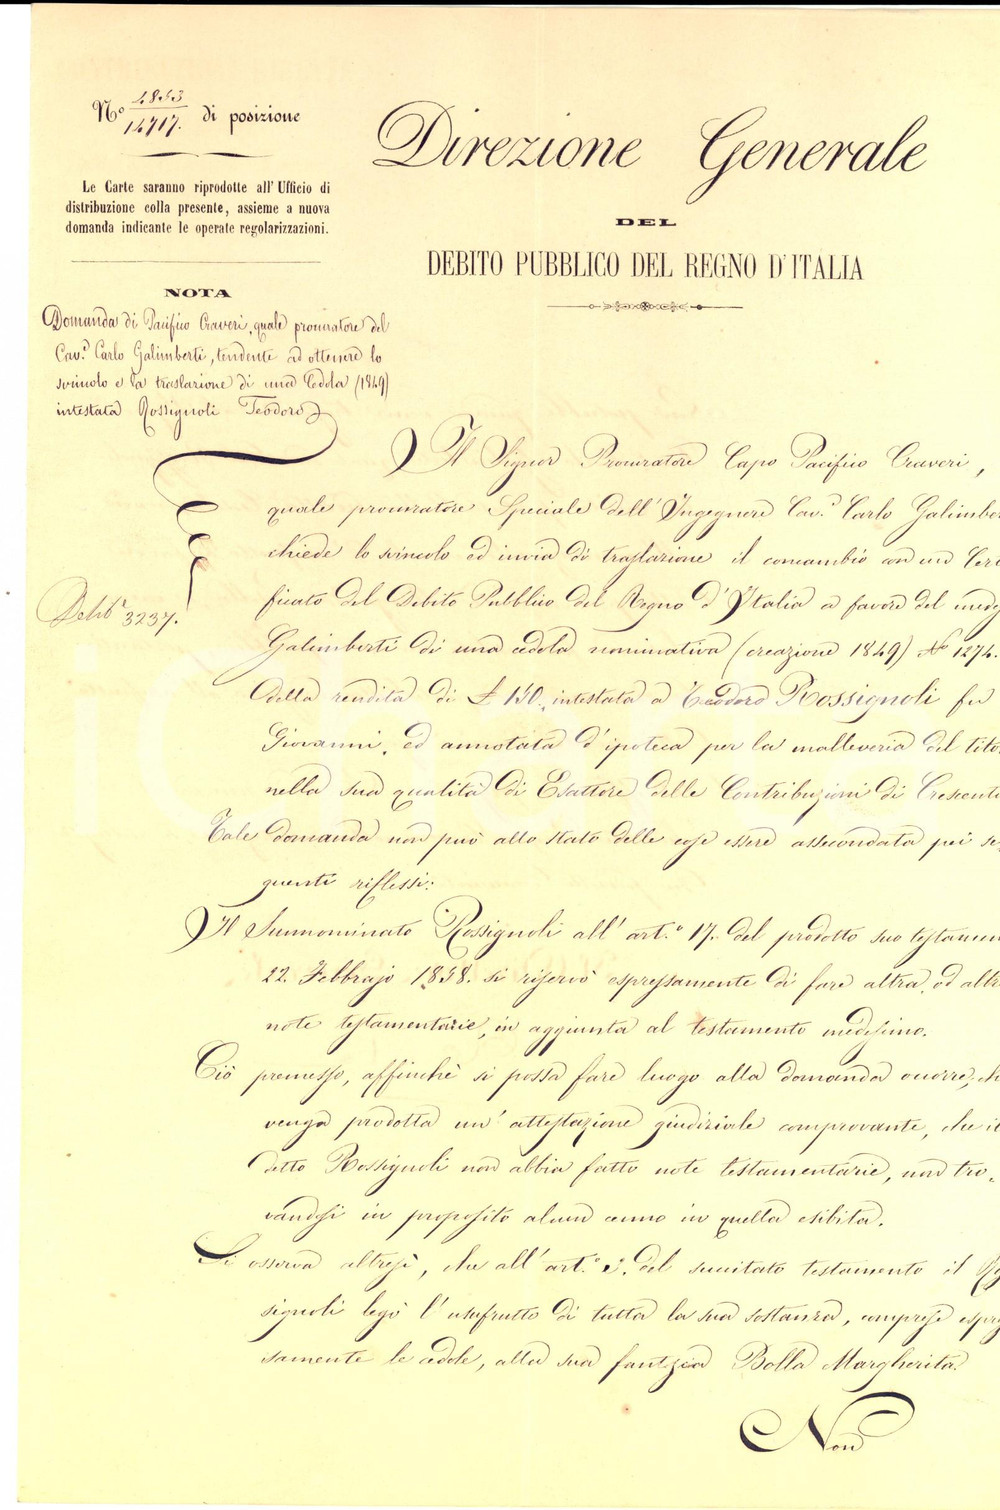 N.º 4853/14717. di posizione
Le Carte saranno riprodotte all' Ufficio di
distribuzione colla presente, assieme a nuova
domanda indicante le operate regolarizzazioni.
Direzione Generale
DEL
DEBITO PUBBLICO DEL REGNO D'ITALIA
NOTA
Domanda di Pacifico Craveri, quale procuratore del
Cav.e Carlo Galimberti, tendente ad ottenere lo
svincolo e la traslazione di una Cedola (1849)
intestata Rossignoli Teodoro
Debº 3237.
Il Signor Procuratore Capo Pacifico Craveri,
quale procuratore Speciale dell'Ingegnere Cav.e Carlo Galimber
chiede lo svincolo ed in via di traslazione il concambio con un Cert
ficato del Debito Pubblico del Regno d'Italia a favore del med
Galimberti di una cedola nominativa (creazione 1849) Nº 1274.
della rendita di £ 150., intestata a Teodoro Rossignoli fu
Giovanni, ed annotata d'ipoteca per la malleveria del tito
nella sua qualità di Esattore delle Contribuzioni di Crescent
Tale domanda non può allo stato delle cose essere assecondata pei se
guenti riflessi:
Il Sunnominato Rossignoli all' art.º 17. del prodotto suo testamen
22. Febbrajo 1858. si riservò espressamente di fare altra, od altr
note testamentarie, in aggiunta al testamento medesimo.
Ciò premesso, affinchè si possa fare luogo alla domanda occorre, ch
venga prodotta un' attestazione giudiziale comprovante, che il
detto Rossignoli non abbia fatto note testamentarie, non tro-
vandosi in proposito alcun cenno in quella esibita.
Si osserva altresì, che all' art.º 3. del succitato testamento il Ro
signoli legò l'usufrutto di tutta la sua sostanza, comprese espre
samente le cedole, alla sua fantesca Bolla Margherita.
Non